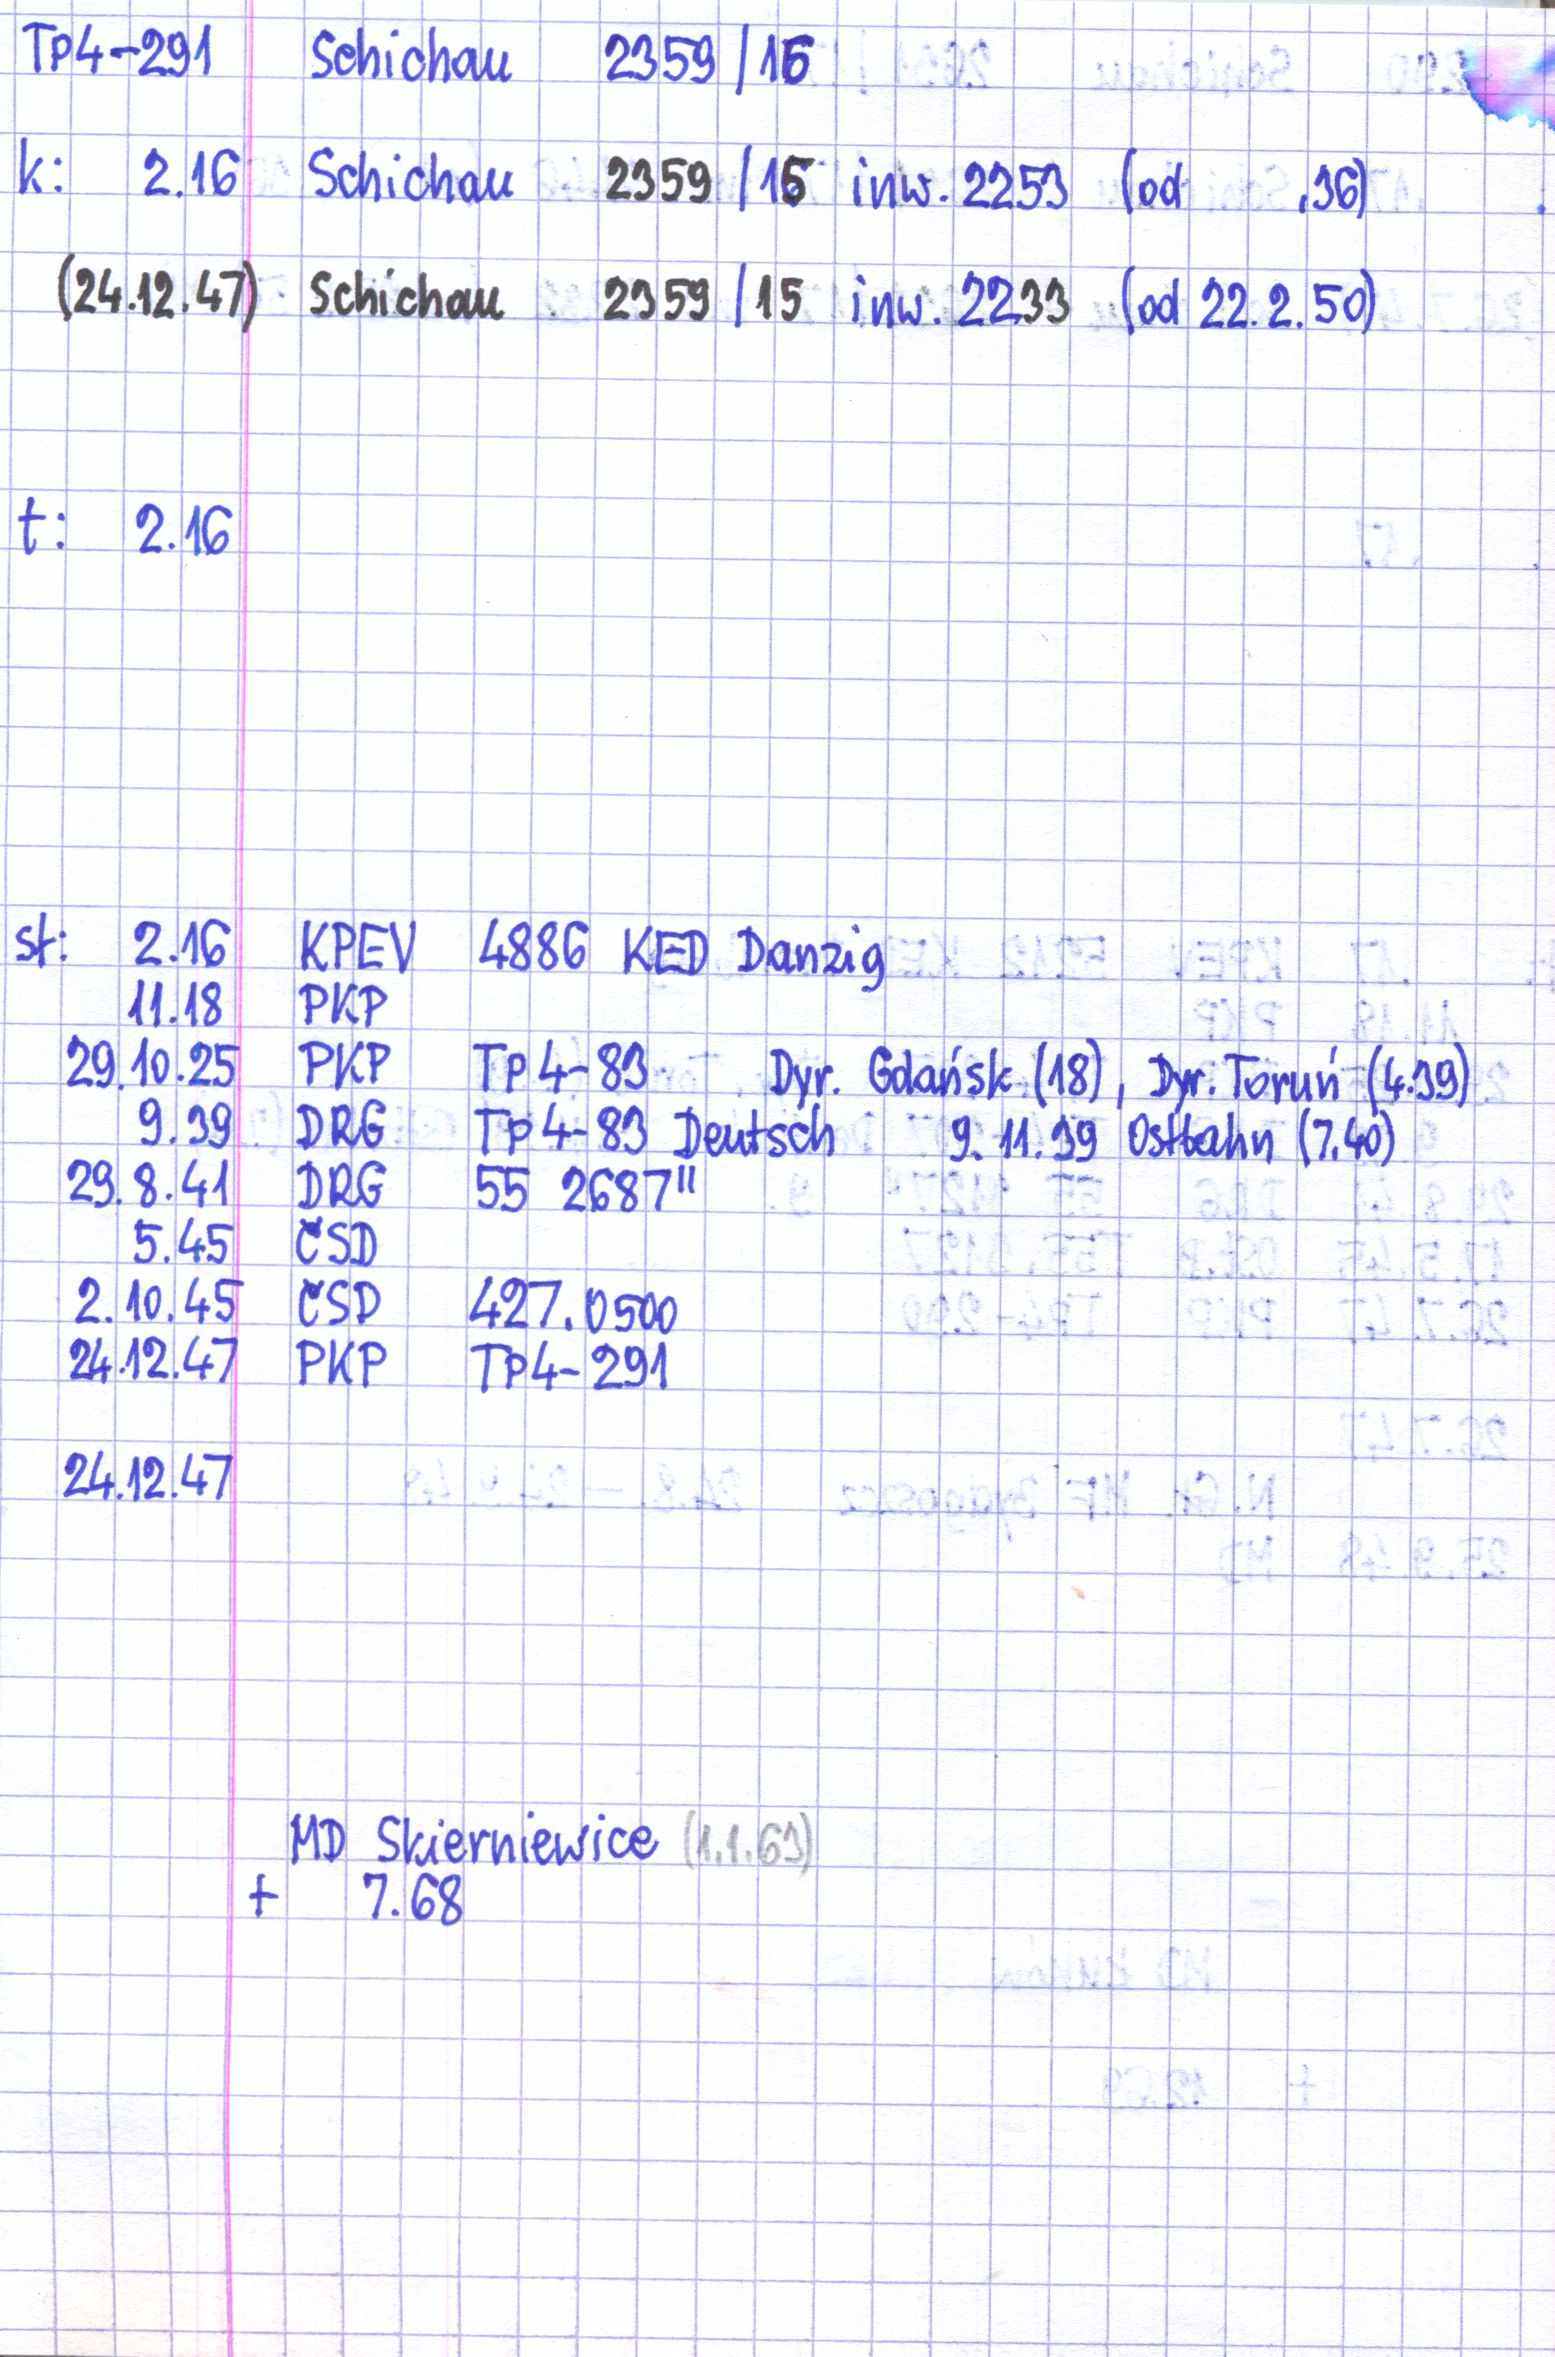 Tp4-291 Schichau 2359/16
k: 2.16 Schichau 2359/15 inw. 2253 (od .36)
(24.12.47) Schichau 2359/15 inw. 2233 (od 22.2.50)
t: 2.16
st: 2.16 KPEV 4886 KED Danzig
11.18 PKP
29.10.25 PKP Tp4-83 Dyr. Gdańsk (18), Dyr. Toruń (4.39)
9.39 DRG Tp4-83 Deutsch 9.11.39 Ostbahn (7.40)
29.8.41 DRG 55 2687"
5.45 ČSD
2.10.45 ČSD 427.0500
24.12.47 PKP Tp4-291
24.12.47
MD Skierniewice (1.1.63)
+ 7.68